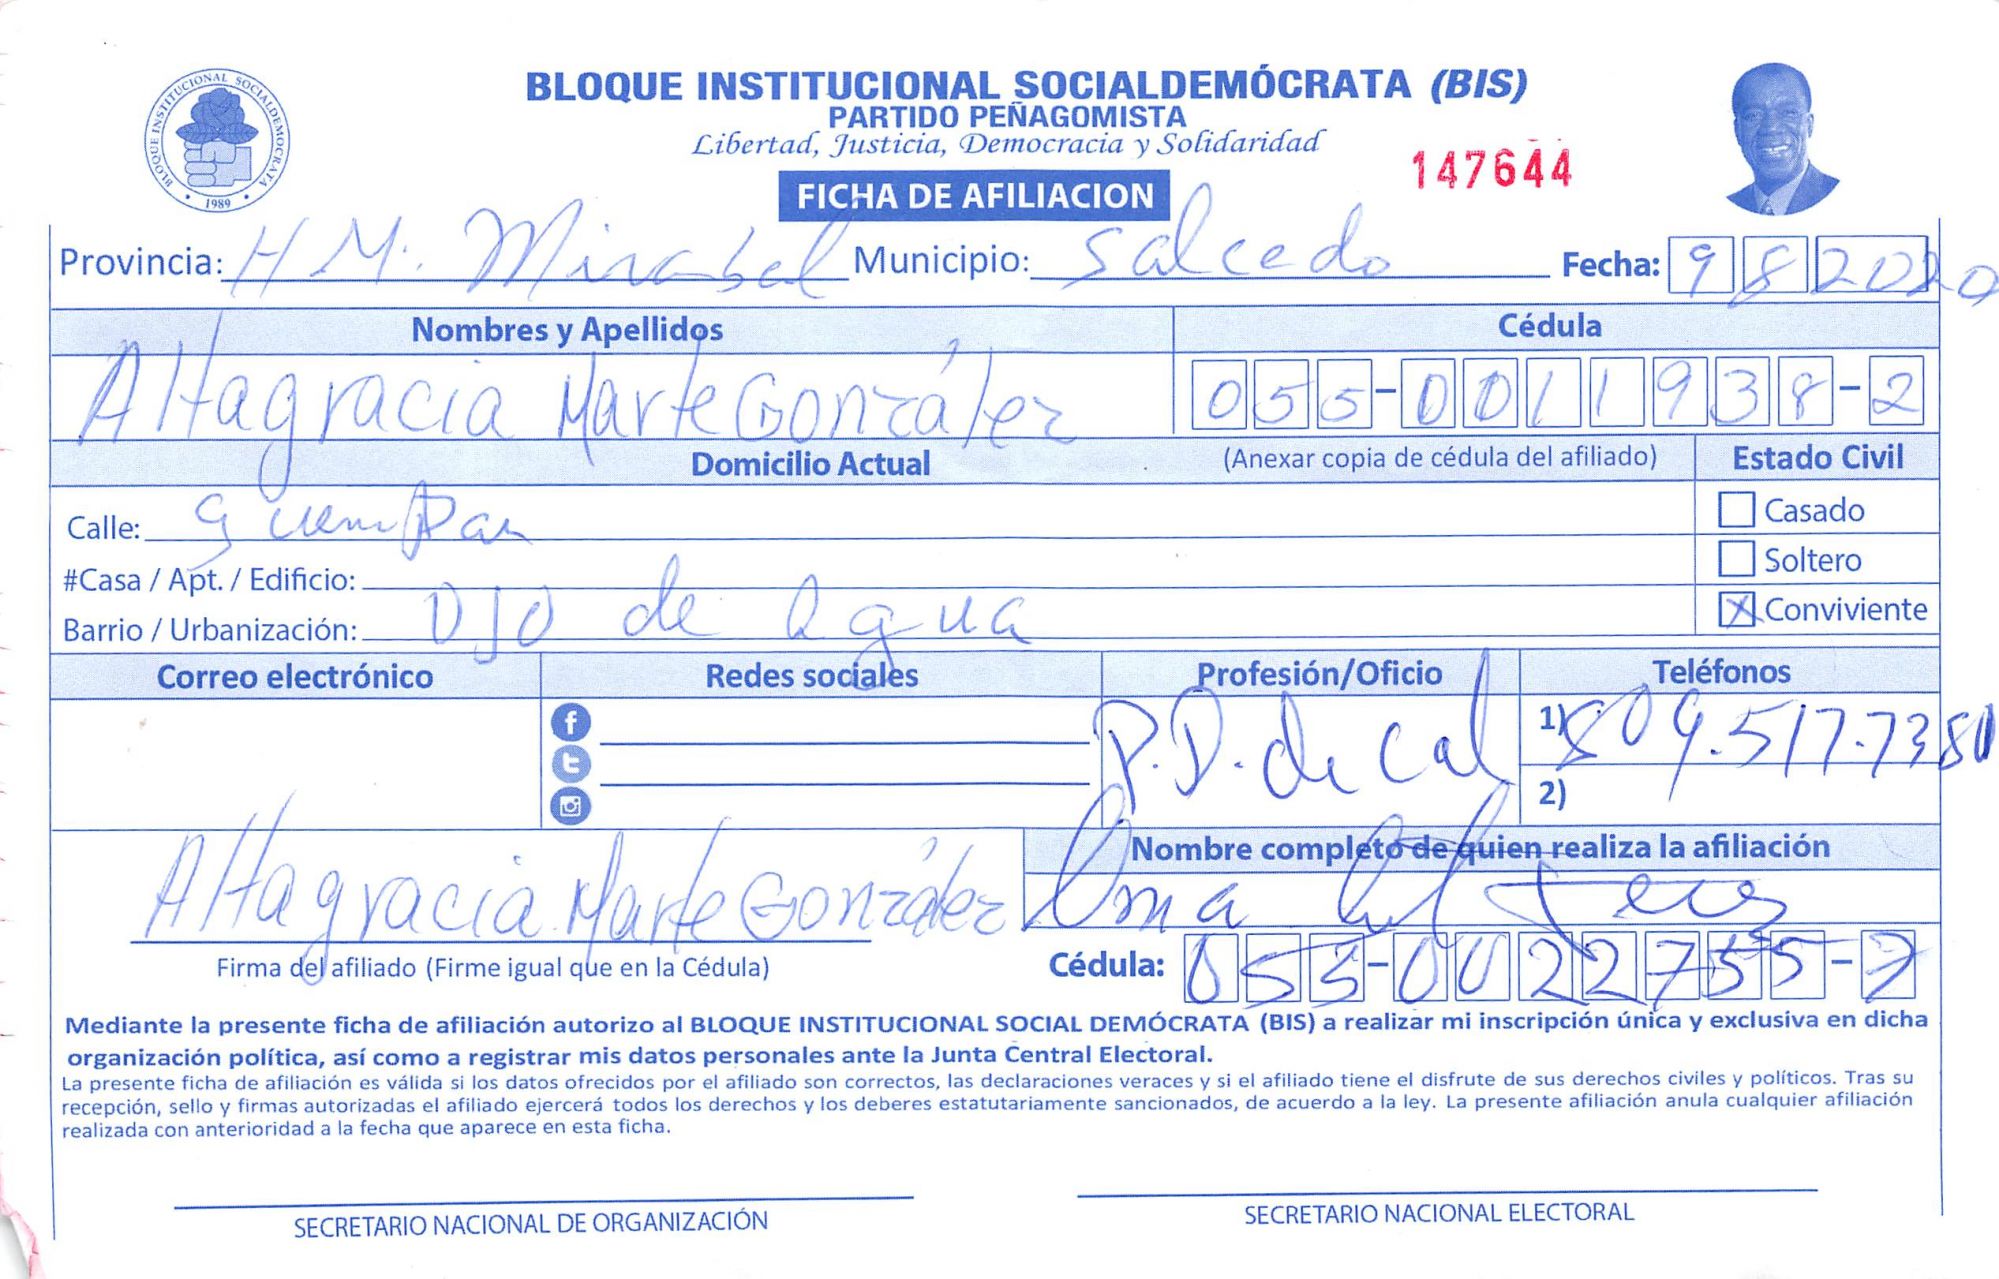 BLOQUE INSTITUCIONAL SOCIALDEMÓCRATA (BIS)
PARTIDO PEÑAGOMISTA
Libertad, Justicia, Democracia y Solidaridad
BLOQUE INSTITUCIONAL SOCIALDEMOCRATA
1989
147644
FICHA DE AFILIACION
Provincia: H M. Mirabal Municipio: Salcedo Fecha: 9 8 2020
Nombres y Apellidos Cédula
Altagracia Marte González 055-0011938-2
Domicilio Actual (Anexar copia de cédula del afiliado) Estado Civil
Calle:
Casado
#Casa / Apt. / Edificio:
Soltero
Barrio / Urbanización: Ojo de agua
X Conviviente
Correo electrónico Redes sociales Profesión/Oficio Teléfonos
P.D. de Cal 1) 809.517.7380
2)
Nombre completo de quien realiza la afiliación
Altagracia Marte González
Firma del afiliado (Firme igual que en la Cédula) Cédula: 055-0022755-7
Mediante la presente ficha de afiliación autorizo al BLOQUE INSTITUCIONAL SOCIAL DEMÓCRATA (BIS) a realizar mi inscripción única y exclusiva en dicha
organización política, así como a registrar mis datos personales ante la Junta Central Electoral.
La presente ficha de afiliación es válida si los datos ofrecidos por el afiliado son correctos, las declaraciones veraces y si el afiliado tiene el disfrute de sus derechos civiles y políticos. Tras su
recepción, sello y firmas autorizadas el afiliado ejercerá todos los derechos y los deberes estatutariamente sancionados, de acuerdo a la ley. La presente afiliación anula cualquier afiliación
realizada con anterioridad a la fecha que aparece en esta ficha.
SECRETARIO NACIONAL DE ORGANIZACIÓN SECRETARIO NACIONAL ELECTORAL